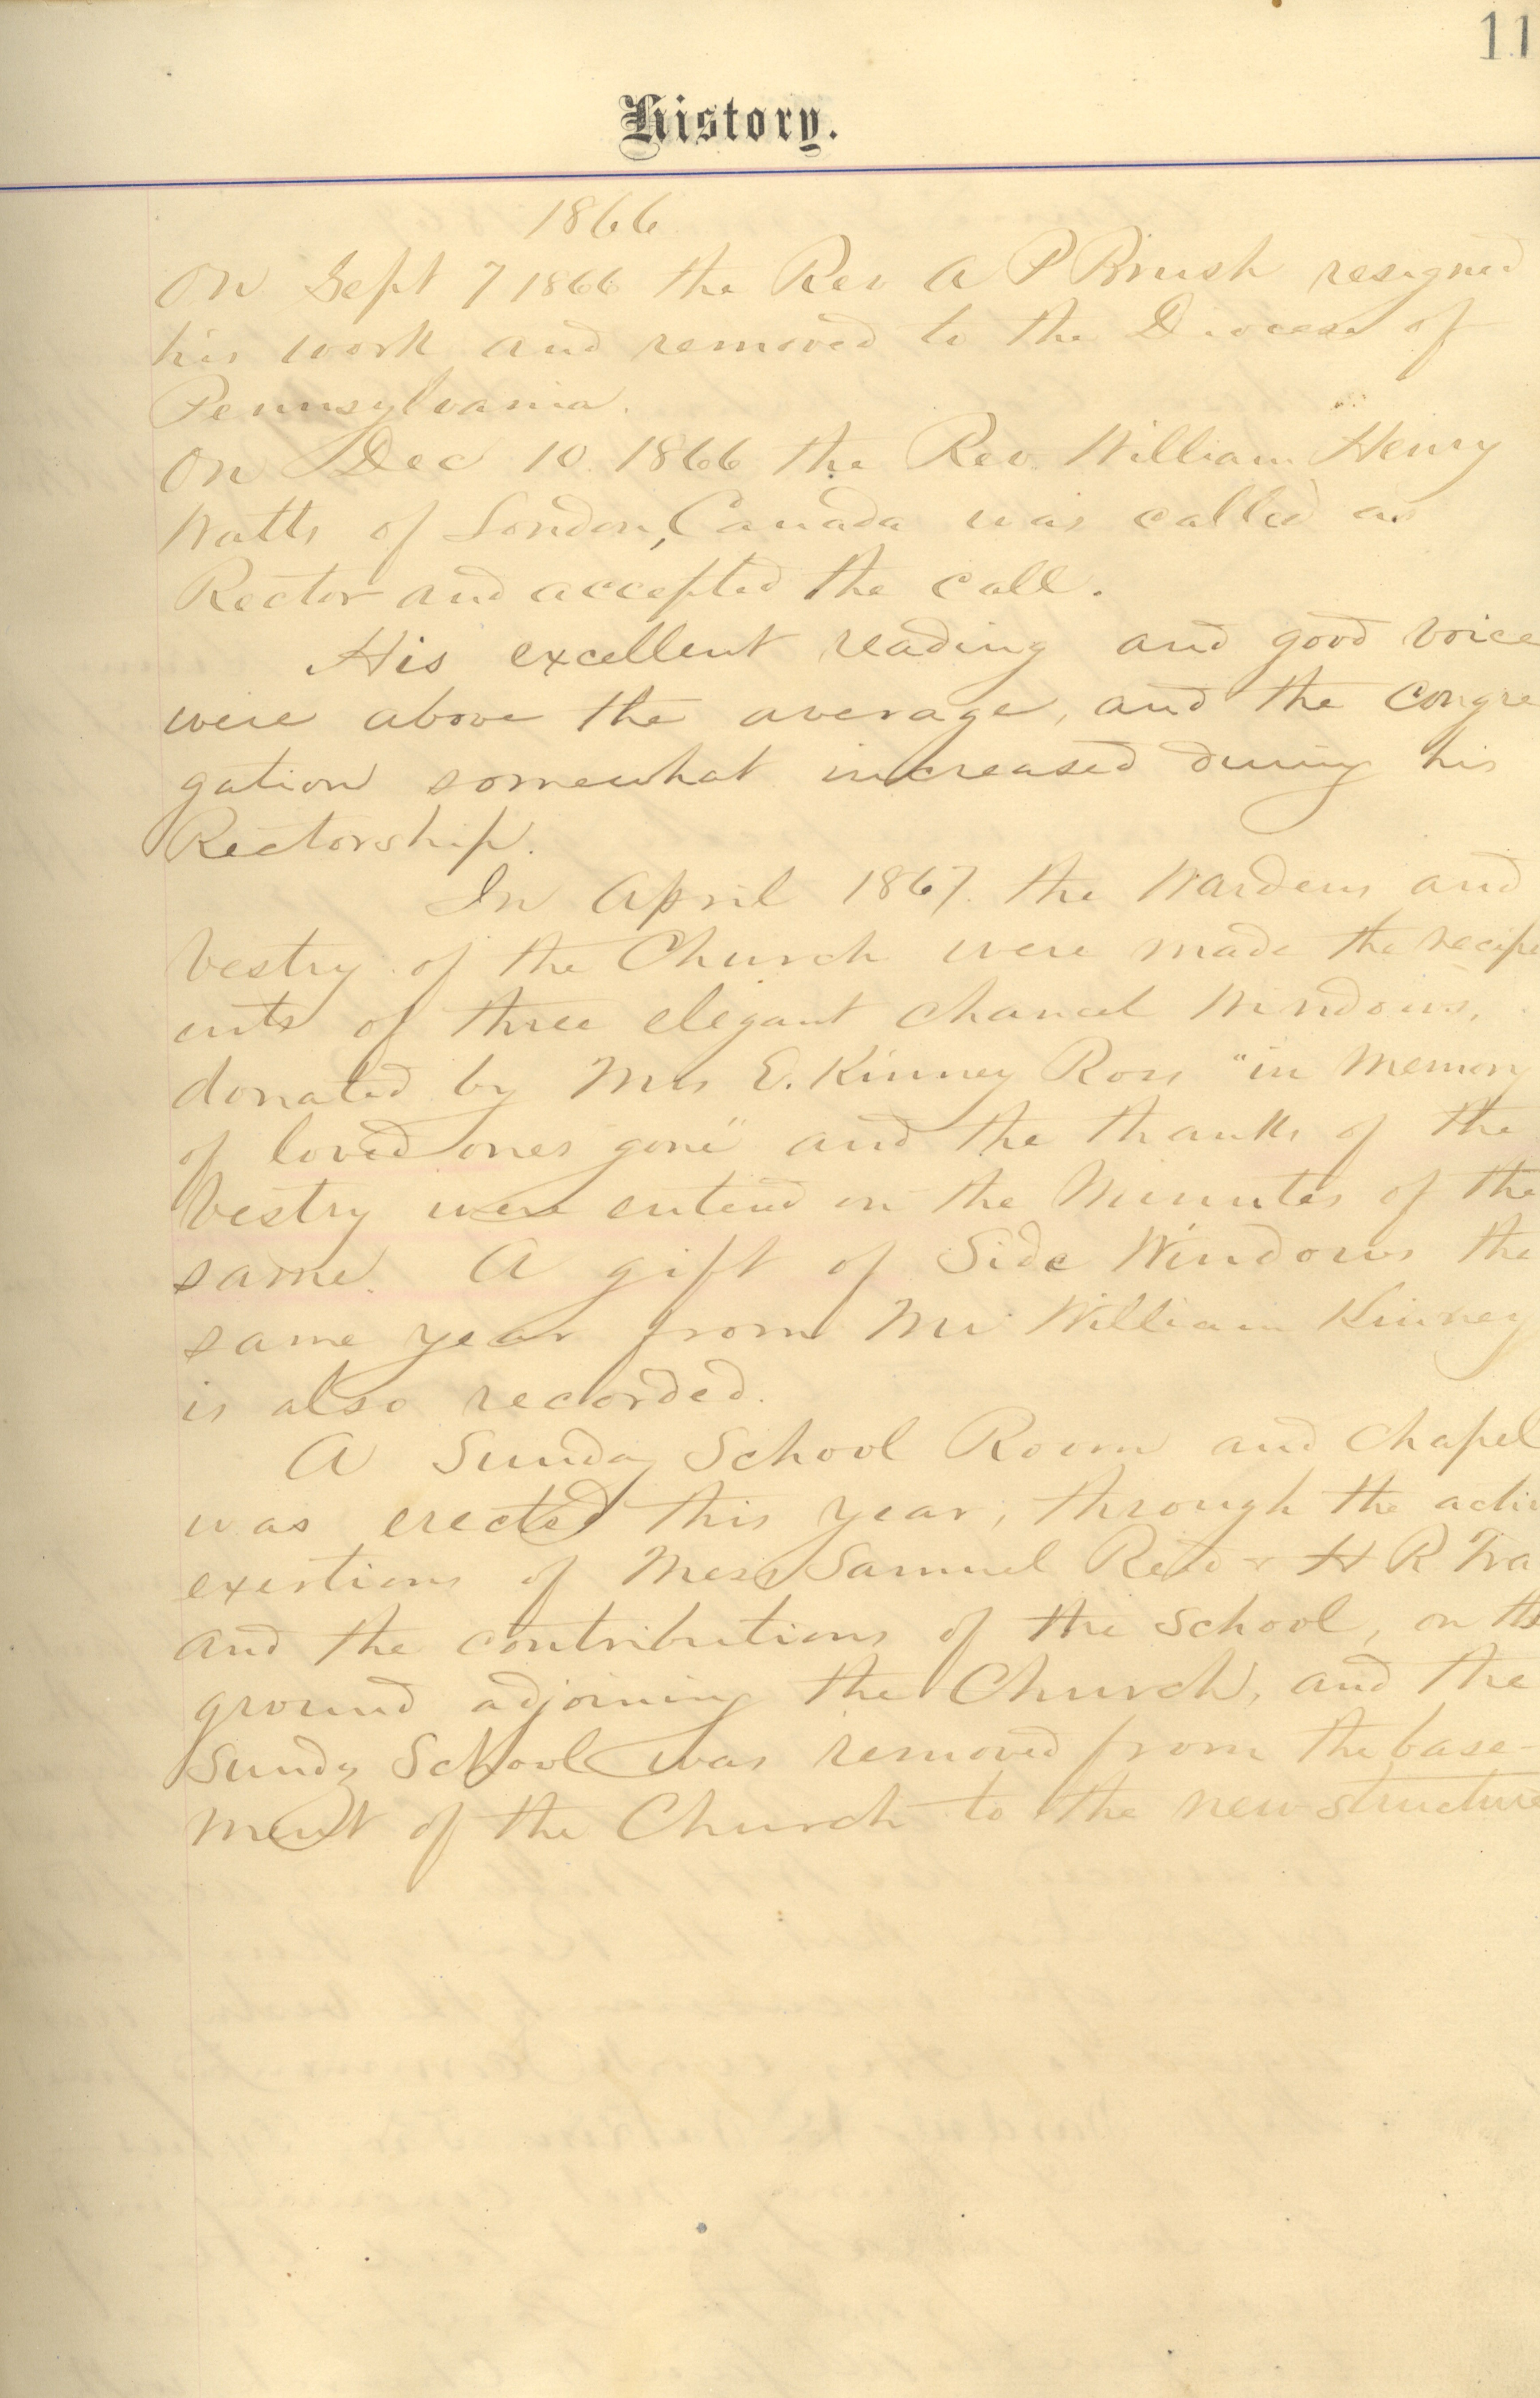 11
History.
1866
On Sept 7 1866 the Rev A P Brush resigned
his work and removed to the Diocese of
Pennsylvania.
On Dec 10. 1866 the Rev. William Henry
Watts of London, Canada was called as
Rector and accepted the call.
His excellent reading and good voice
were above the average, and the congre
gation somewhat increased during his
Rectorship.
In April 1867. the Wardens and
Vestry of the Church were made the recipi
ents of three elegant chancel Windows,
donated by Mrs E. Kinney Ross "in memory
of loved ones gone" and the thanks of the
Vestry were entered on the Minutes of the
same. A gift of Side Windows the
same year from Mr William Kinney
is also recorded.
A Sunday School Room and Chapel
was erected this year, through the activ
exertions of Mess Samuel Reid & H R Tra
and the contributions of the School, on the
ground adjoining the Church, and the
Sundy School was removed from the base-
ment of the Church to the new structure